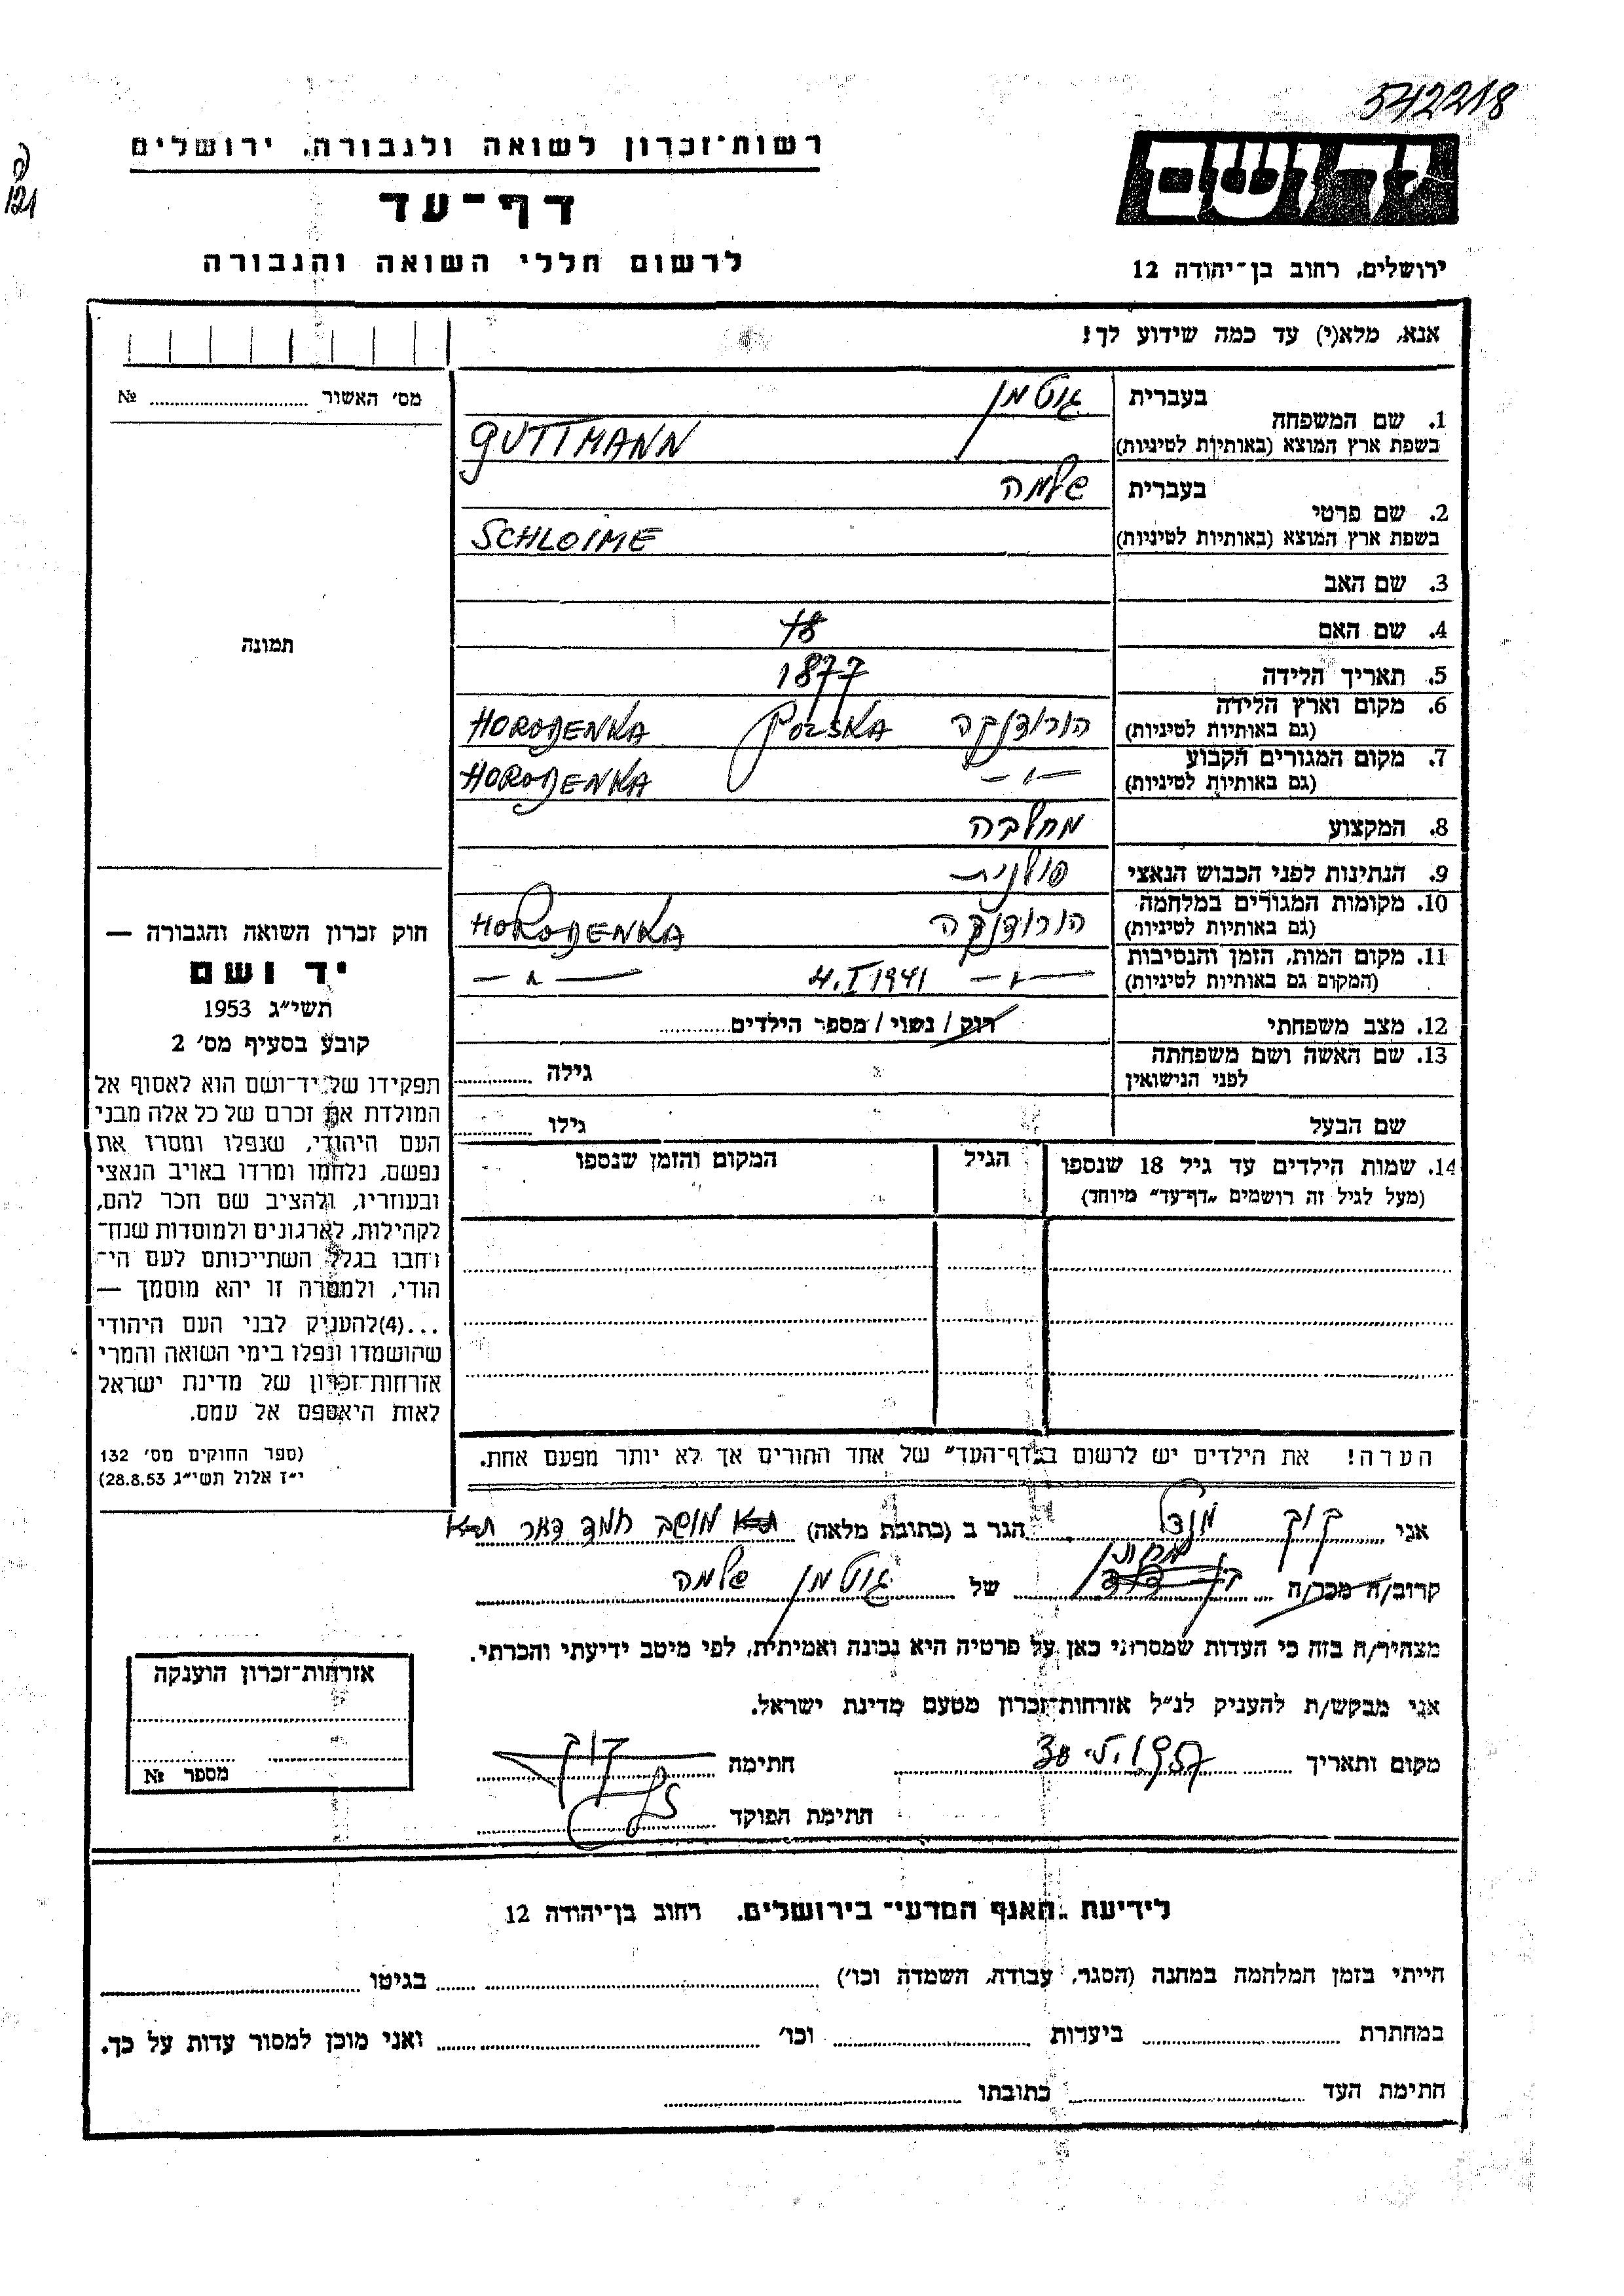 542218
רשות־זכרון לשואה ולגבורה, ירושלים
דף־עד
לרשום חללי השואה והגבורה
יד ושם
ירושלים, רחוב בן־יהודה 12
אנא, מלא(י) עד כמה שידוע לך!
מס׳ האשור ........ №
תמונה
1. שם המשפחה בעברית גוטמן
בשפת ארץ המוצא (באותיות לטיניות) GUTTMANN
2. שם פרטי בעברית שלמה
בשפת ארץ המוצא (באותיות לטיניות) SCHLOIME
3. שם האב
4. שם האם
5. תאריך הלידה 1877
6. מקום וארץ הלידה הורודנקה POLSKA HORODENKA
(גם באותיות לטיניות)
7. מקום המגורים הקבוע —״— HORODENKA
(גם באותיות לטיניות)
8. המקצוע מחלבה
9. הנתינות לפני הכבוש הנאצי פולנית
10. מקומות המגורים במלחמה הורודנקה HORODENKA
(גם באותיות לטיניות)
11. מקום המות, הזמן והנסיבות —״— 4.I 1941 —״—
(המקום גם באותיות לטיניות)
12. מצב משפחתי רוק / נשוי / מספר הילדים........
13. שם האשה ושם משפחתה גילה ........
לפני הנישואין
שם הבעל גילו ........
14. שמות הילדים עד גיל 18 שנספו הגיל המקום והזמן שנספו
(מעל לגיל זה רושמים „דף־עד״ מיוחד)
הערה! את הילדים יש לרשום ב„דף־העד״ של אחד ההורים אך לא יותר מפעם אחת.
חוק זכרון השואה והגבורה —
יד ושם
תשי״ג 1953
קובע בסעיף מס׳ 2
תפקידו של יד־ושם הוא לאסוף אל
המולדת את זכרם של כל אלה מבני
העם היהודי, שנפלו ומסרו את
נפשם, נלחמו ומרדו באויב הנאצי
ובעוזריו, ולהציב שם וזכר להם,
לקהילות, לארגונים ולמוסדות שנח־
רבו בגלל השתייכותם לעם הי־
הודי, ולמטרה זו יהא מוסמך —
...(4) להעניק לבני העם היהודי
שהושמדו ונפלו בימי השואה והמרי
אזרחות־זכרון של מדינת ישראל
לאות היאספם אל עמם.
(ספר החוקים מס׳ 132
י״ז אלול תשי״ג 28.8.53)
אני קוק מנדל הגר ב (כתובת מלאה) מושב חמד דאר ת״א
קרוב/ה מכר/ה של גוטמן שלמה
מצהיר/ה בזה כי העדות שמסרתי כאן על פרטיה היא נכונה ואמיתית, לפי מיטב ידיעתי והכרתי.
אני מבקש/ת להעניק לנ״ל אזרחות־זכרון מטעם מדינת ישראל.
מקום ותאריך חתימה קוק
חתימת הפוקד
אזרחות־זכרון הוענקה
מספר №
לידיעת „האגף המדעי״ בירושלים, רחוב בן־יהודה 12
הייתי בזמן המלחמה במחנה (הסגר, עבודה, השמדה וכו׳) ........ בגיטו ........
במחתרת ........ ביערות ........ וכו׳ ........ ואני מוכן למסור עדות על כך.
חתימת העד ........ כתובתו ........